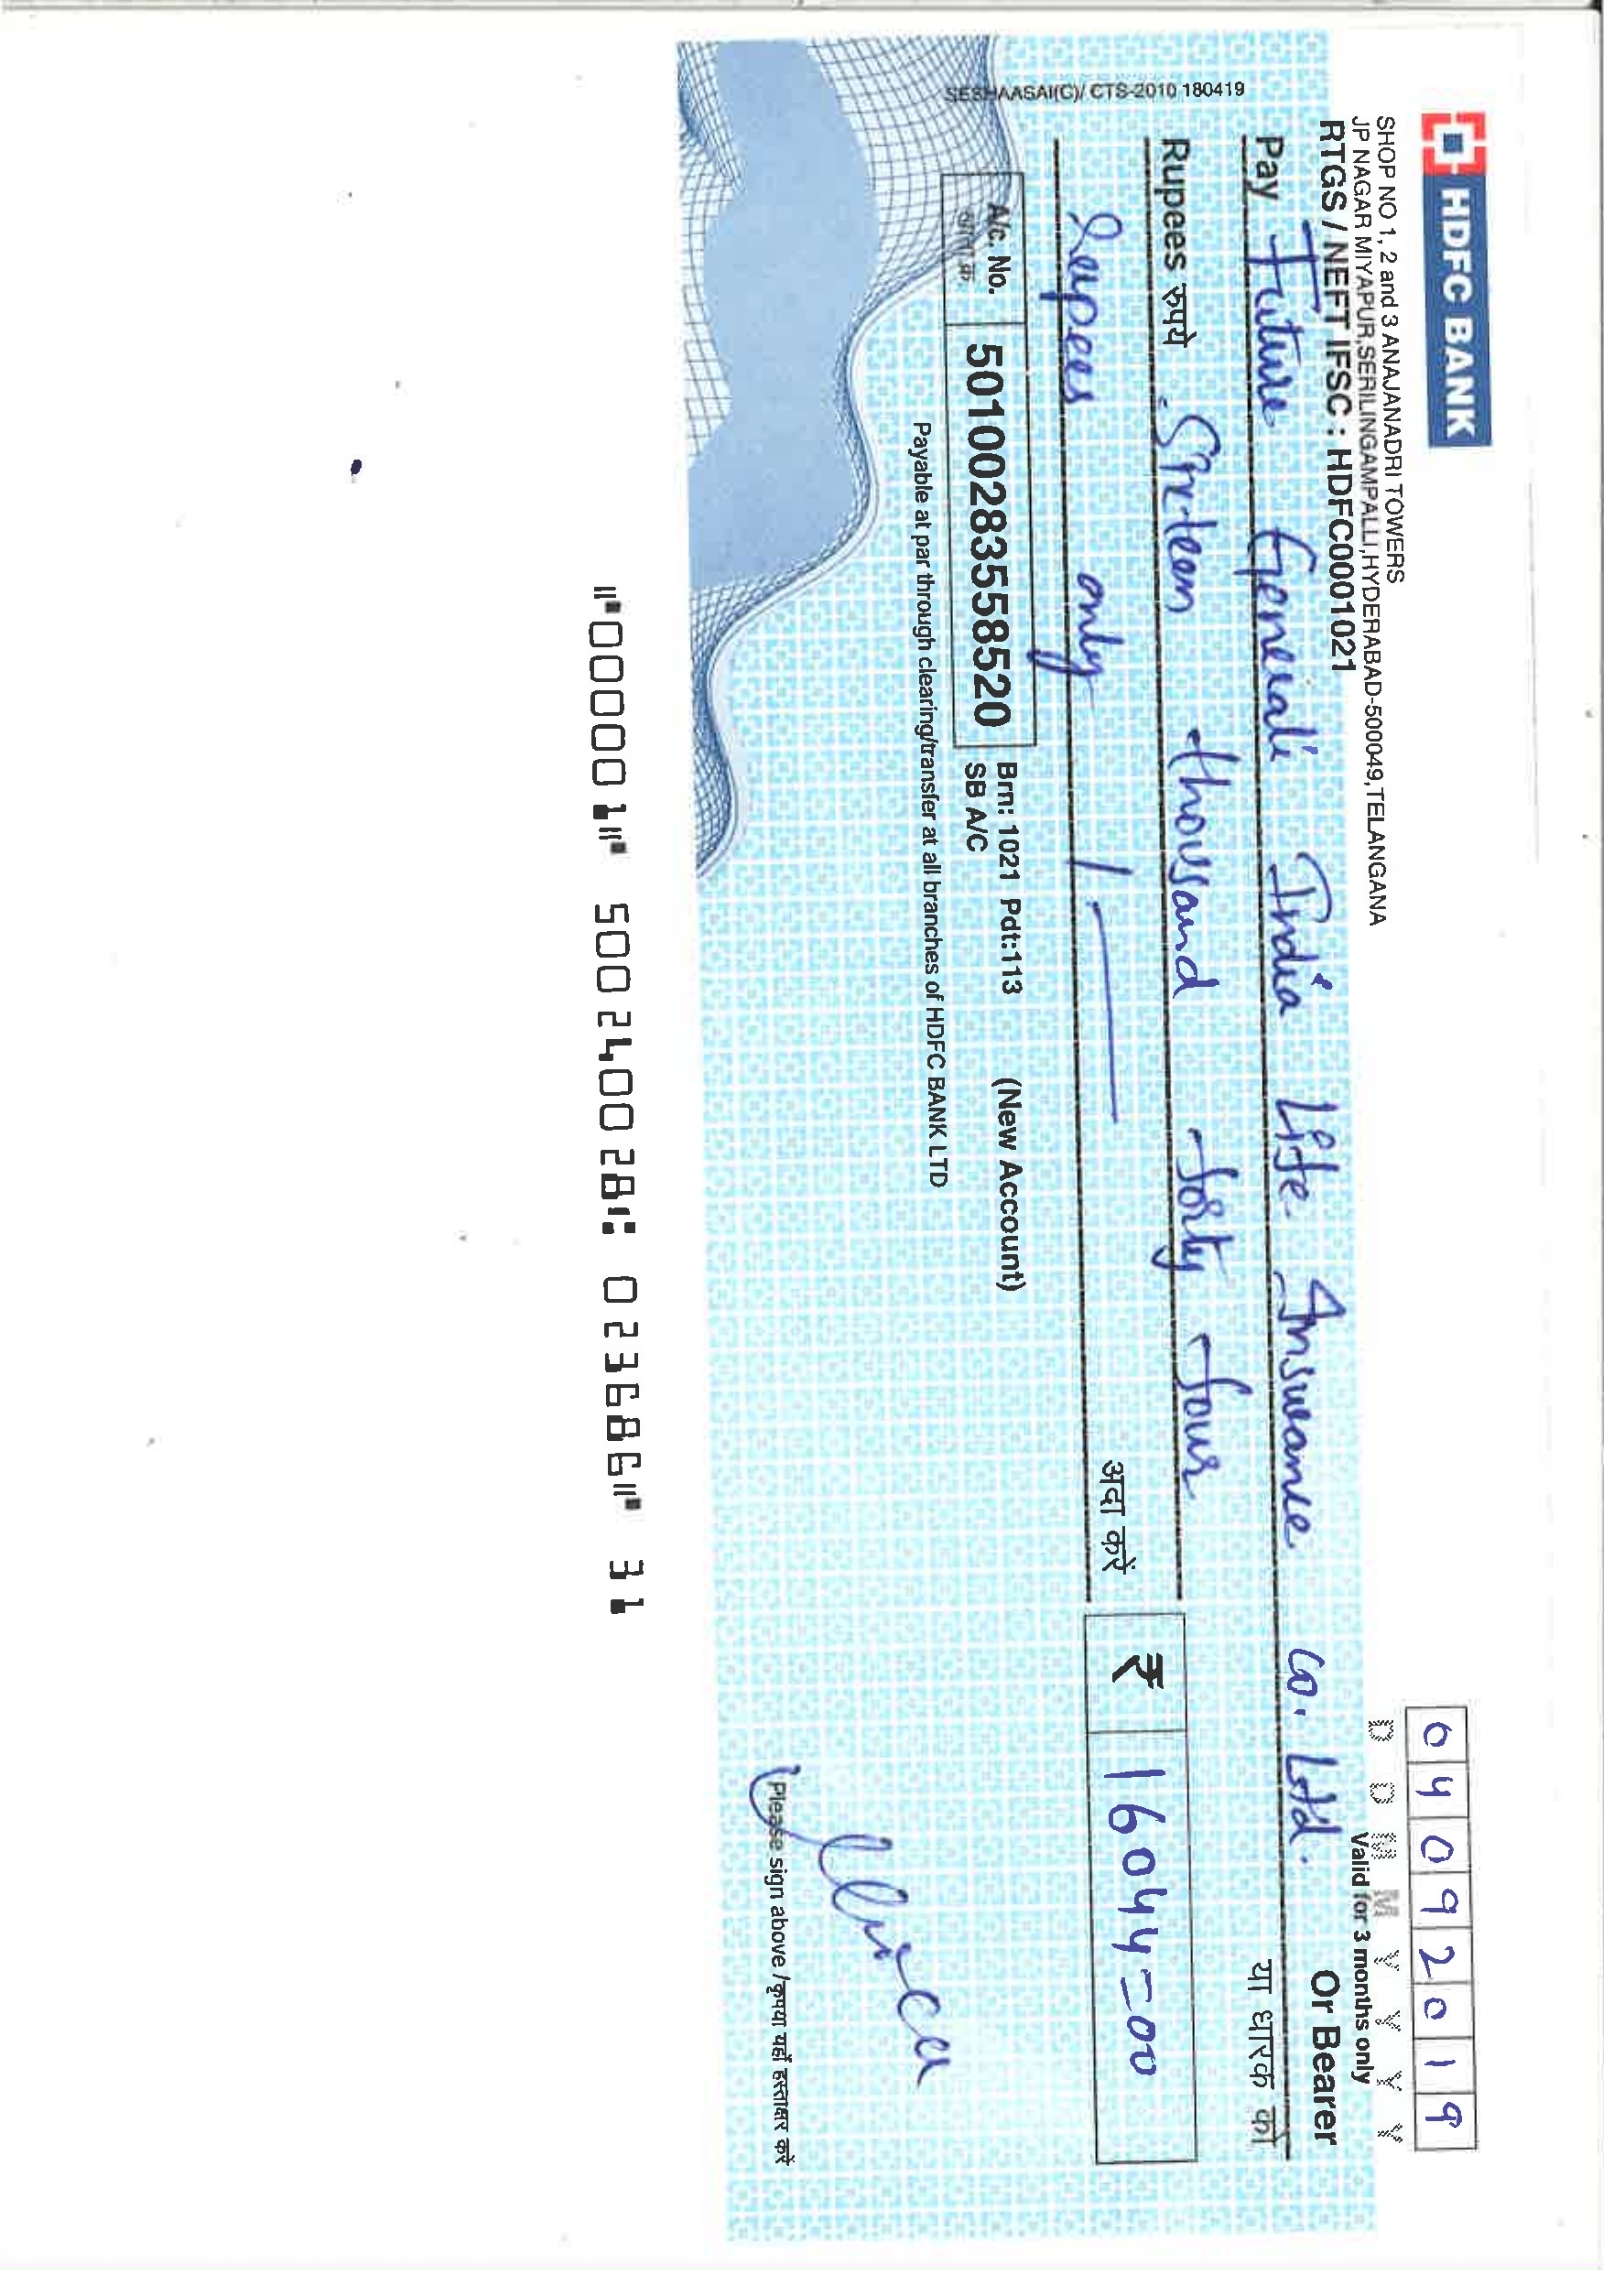 HDFC BANK
SHOP NO 1, 2 and 3 ANAJANADRI TOWERS
JP NAGAR MIYAPUR,SERILINGAMPALLI,HYDERABAD-500049,TELANGANA
RTGS / NEFT IFSC : HDFC0001021
0 4 0 9 2 0 1 9
D D M M Y Y Y Y
Valid for 3 months only
Pay Future Generali India Life Insurance Co. Ltd.
Or Bearer
या धारक को
Rupees रुपये Sixteen thousand forty four
rupees only /-
अदा करें
₹ 16044=00
A/c. No. 50100283558520
खाता क्र.
Brn: 1021 Pdt:113 (New Account)
SB A/C
Payable at par through clearing/transfer at all branches of HDFC BANK LTD
SESHAASAI(C)/ CTS-2010 180419
Please sign above /कृपया यहाँ हस्ताक्षर करें
⑈000001⑈ 500240028⑆ 023686⑈ 31